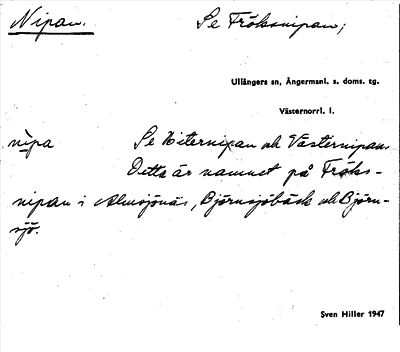 Nipan. Se Fröksnipan;
Ullångers sn, Ångermanl. s. doms. tg.
Västernorrl. l.
nìpa Se Hiternipan och Västernipan.
Detta är namnet på Fröks-
nipan i Almsjönäs, Björnsjöbäck och Björn-
sjö.
Sven Hiller 1947